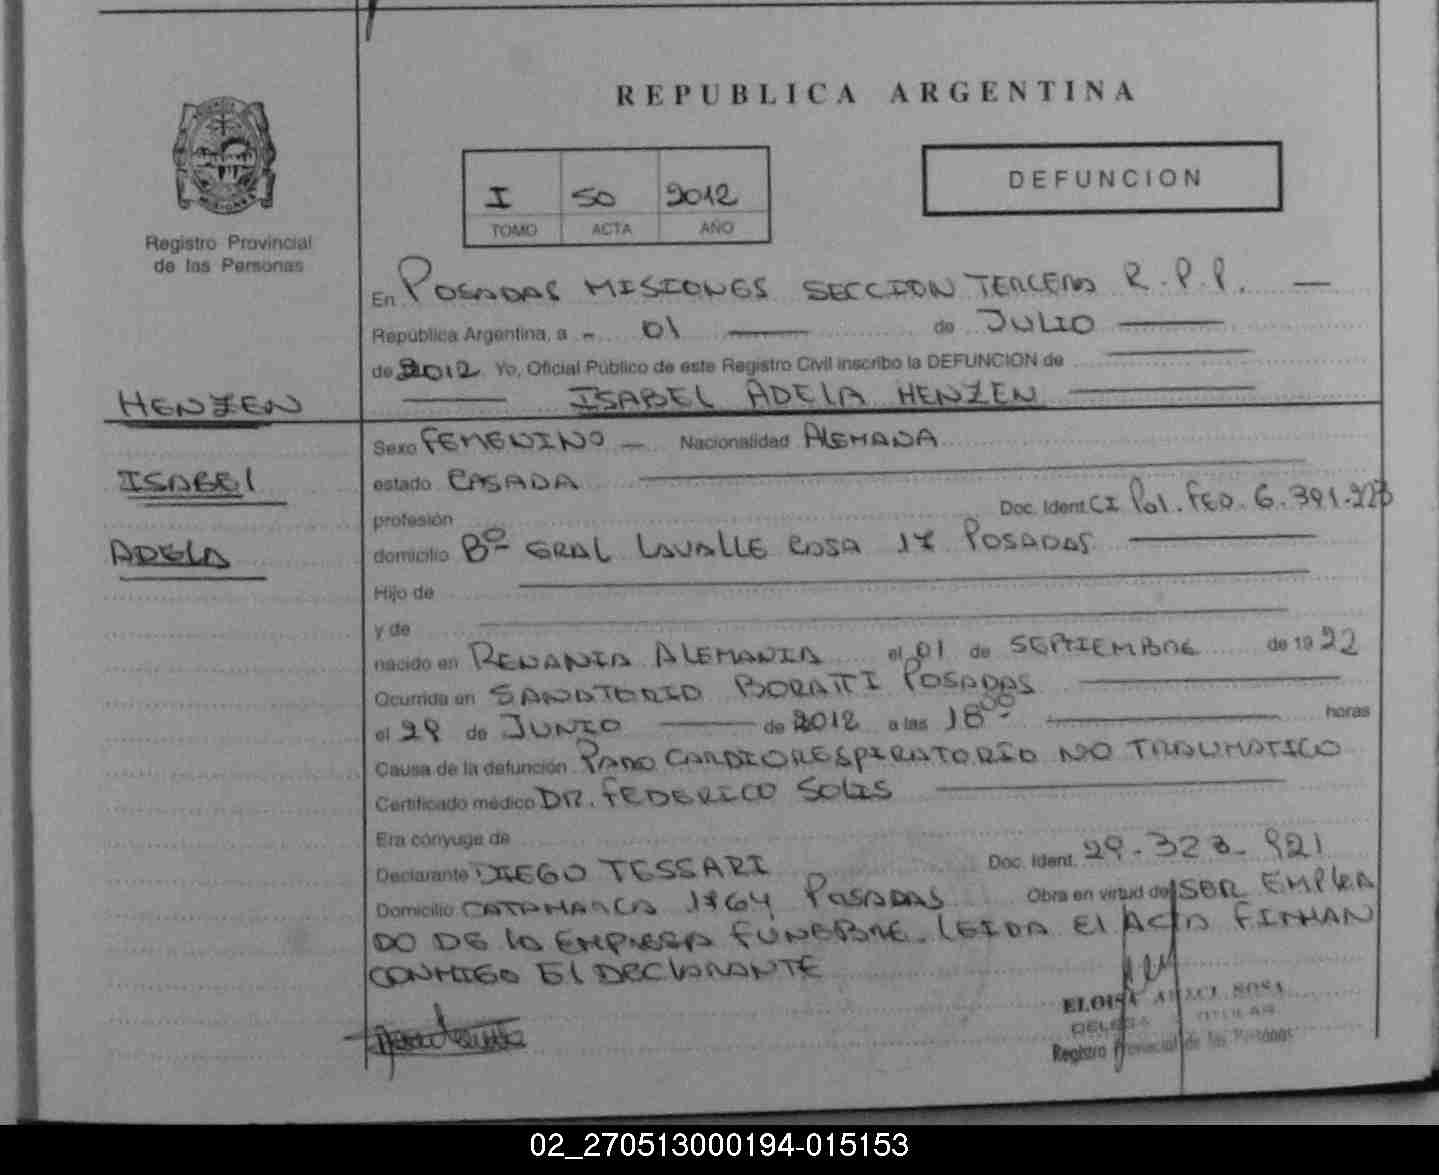 REPUBLICA ARGENTINA
I 50 2012
TOMO ACTA AÑO
DEFUNCION
Registro Provincial
de las Personas
En POSADAS MISIONES SECCION TERCERA R.P.P.
República Argentina, a 01 de JULIO
de 2012 Yo, Oficial Público de este Registro Civil inscribo la DEFUNCION de
ISABEL ADELA HENZEN
HENZEN
ISABEL
ADELA
Sexo FEMENINO Nacionalidad ALEMANA
estado CASADA
profesión Doc. Ident. CI Pol. FED. 6.391.223
domicilio Bº GRAL LAVALLE COSA 17 POSADAS
Hijo de
y de
nacido en RENANIA ALEMANIA el 01 de SEPTIEMBRE de 19 22
Ocurrida en SANATORIO BORATTI POSADAS
el 29 de JUNIO de 2012 a las 18 00 horas
Causa de la defunción PARO CARDIORESPIRATORIO NO TRAUMATICO
Certificado médico DR. FEDERICO SOLIS
Era cónyuge de
Declarante DIEGO TESSARI Doc. Ident. 29.323.921
Domicilio CATAMARCA 1764 POSADAS Obra en virtud de SER EMPLEA
DO DE LA EMPRESA FUNEBRE. LEIDA El ACTA FIRMAN
CONMIGO El DECLARANTE
ELOISA ARACI SOSA
TITULAR
Registro Provincial de las Personas
02_270513000194-015153